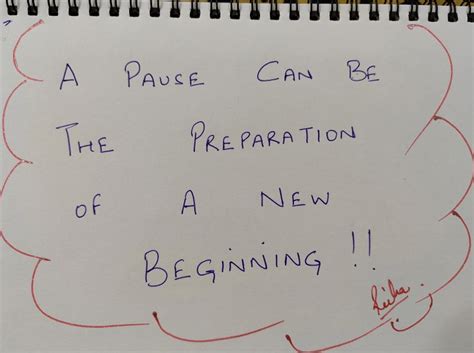 A PAUSE CAN BE
THE PREPARATION
OF A NEW
BEGINNING !!